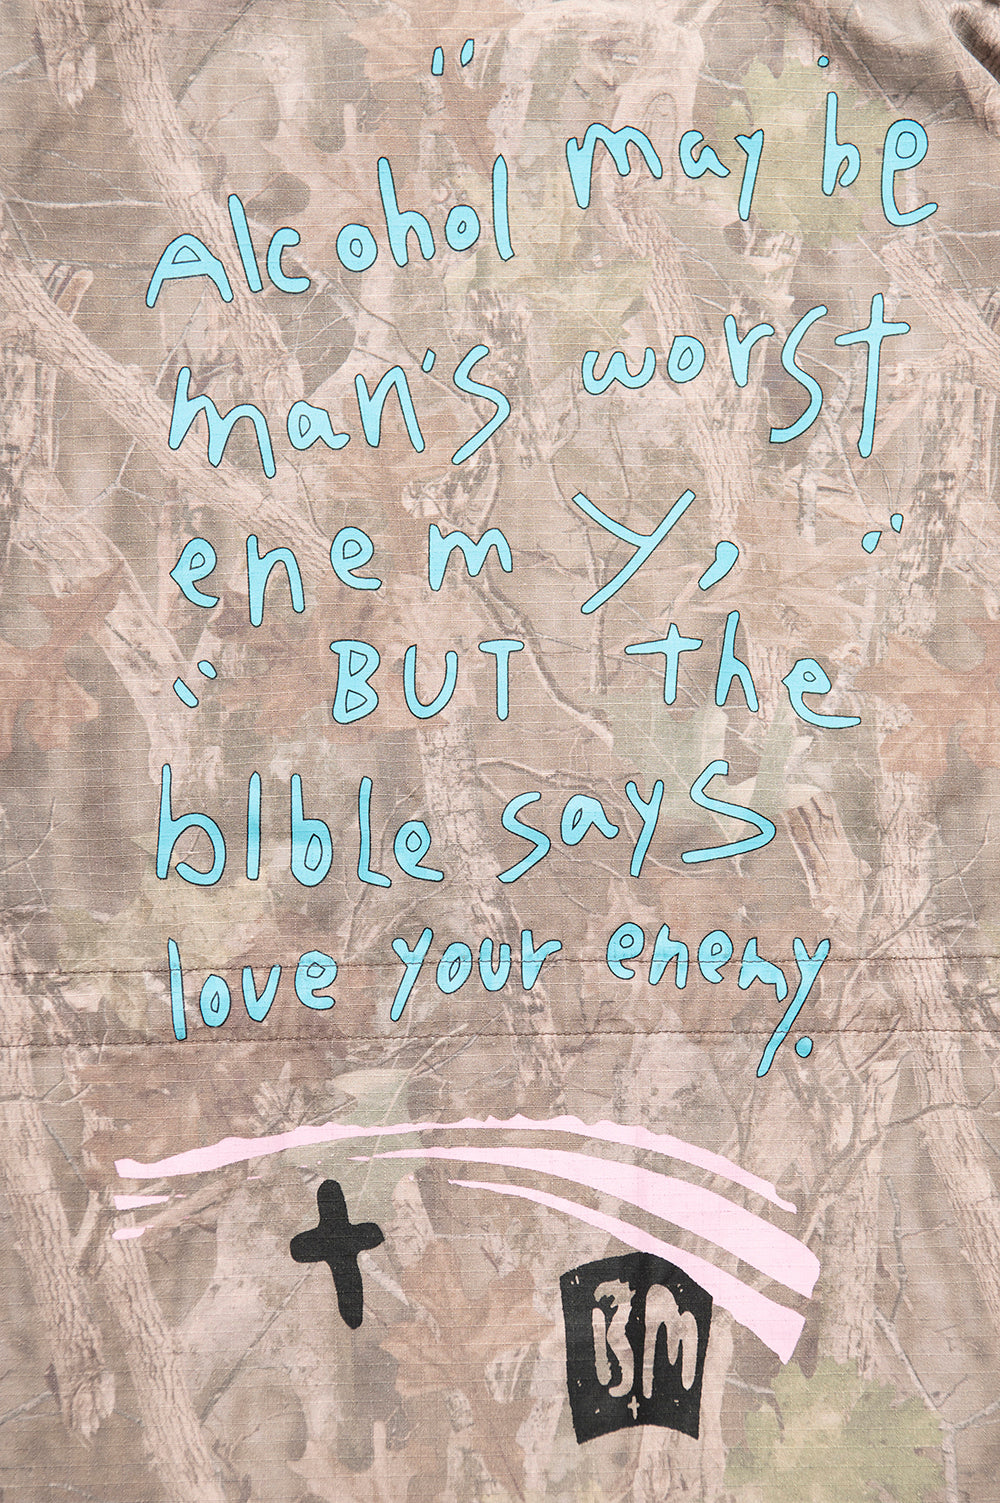 "Alcohol may be
man's worst
enemy,"
"BUT the
bible says
love your enemy.
BM